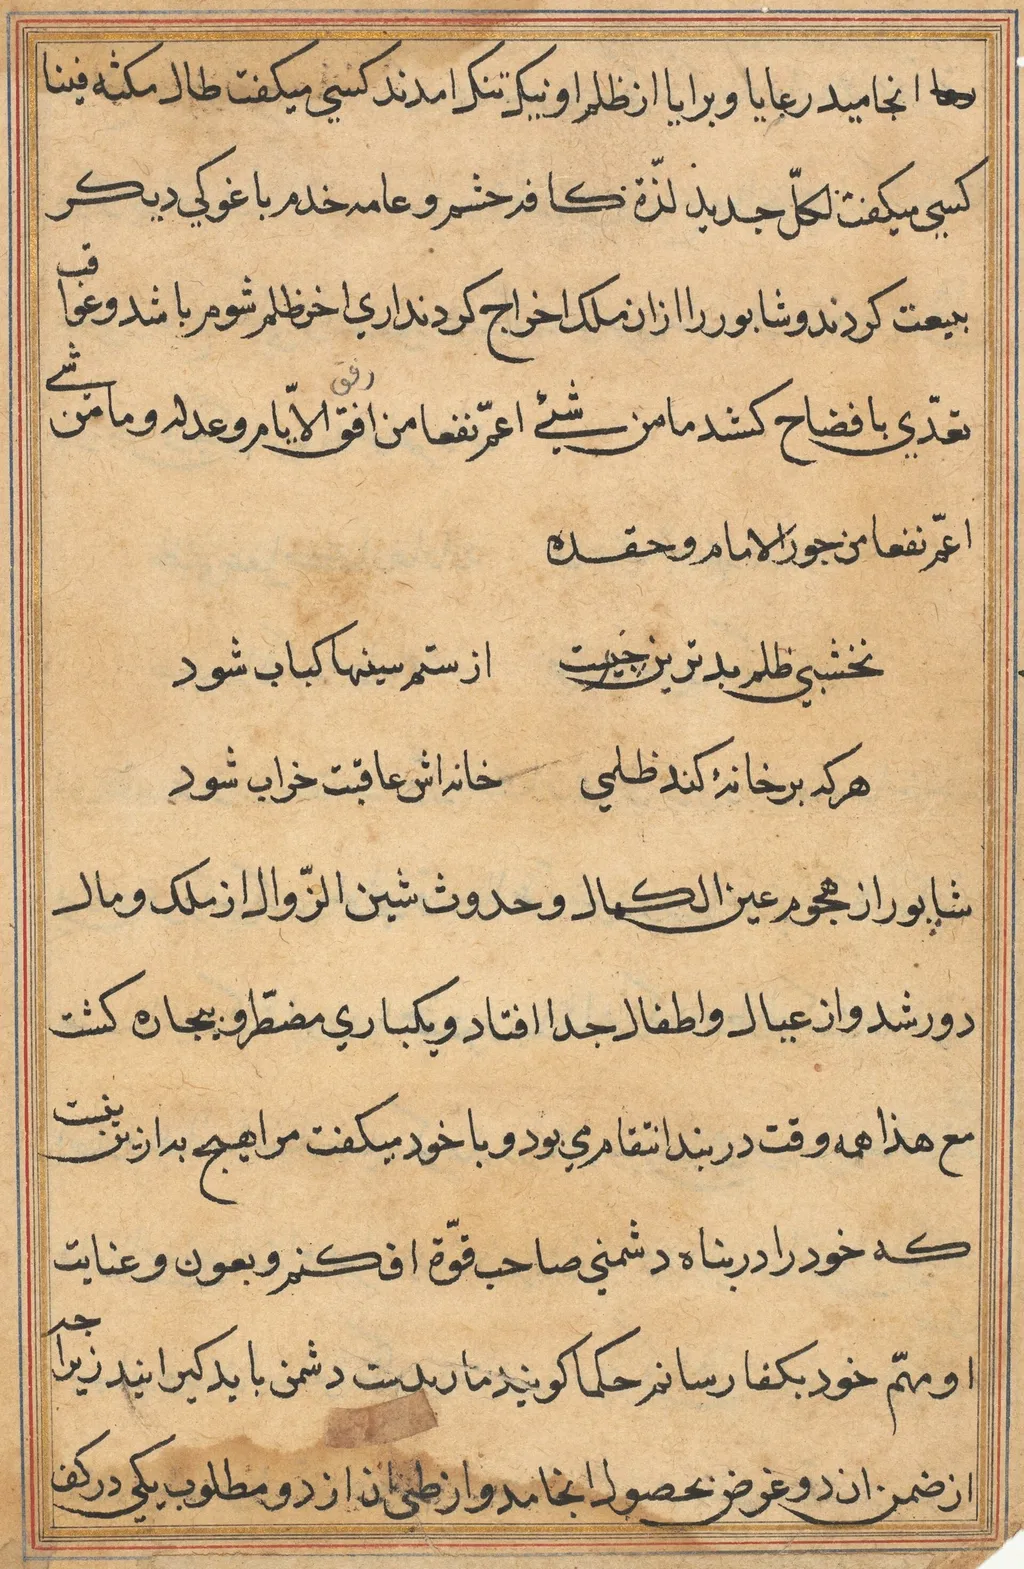 انجامید رعایا و برایا از ظلم او نیک تنک امدند کسی میکفت طال مکثه فینا
کسی میکفت لکلّ جدید لذّة کافه حشم و عامه خدم با غوکی دیکر
بیعت کردند و شابور را ازان ملک اخراج کردند اری اخر ظلم شوم باشد و عواقب
تعدّي با فضاح کشد ما من شیئ اعمّ نفعا من افق الایّام و عدله و ما من شئ
رفق
اعمّ نفعا من جور الامام و حقده
نخشبي ظلم بدترین از ستم سینها کباب شود
هرکه بر خانهٔ کند ظلمي خانه اش عاقبت خراب شود
شاپور از هجوم عین الکمال و حدوث شین الزّوال از ملک و مال
دور شد و از عیال و اطفال جدا افتاد و یکباري مضطّر و بیجاره کشت
مع هذا همه وقت در بند انتقام مي بود و با خود میکفت مرا هیج به ازین نیست
که خود را در بناه دشمني صاحب قوّة افکنم و بعون و عنایت
او مهمّ خود بکفار رسانم حکما کویند مار بدست دشمن باید کیرانید زیرا جه
از ضمن ان دو غرض بحصول انجامد و از طي ان از دو مطلوب یکي در کف